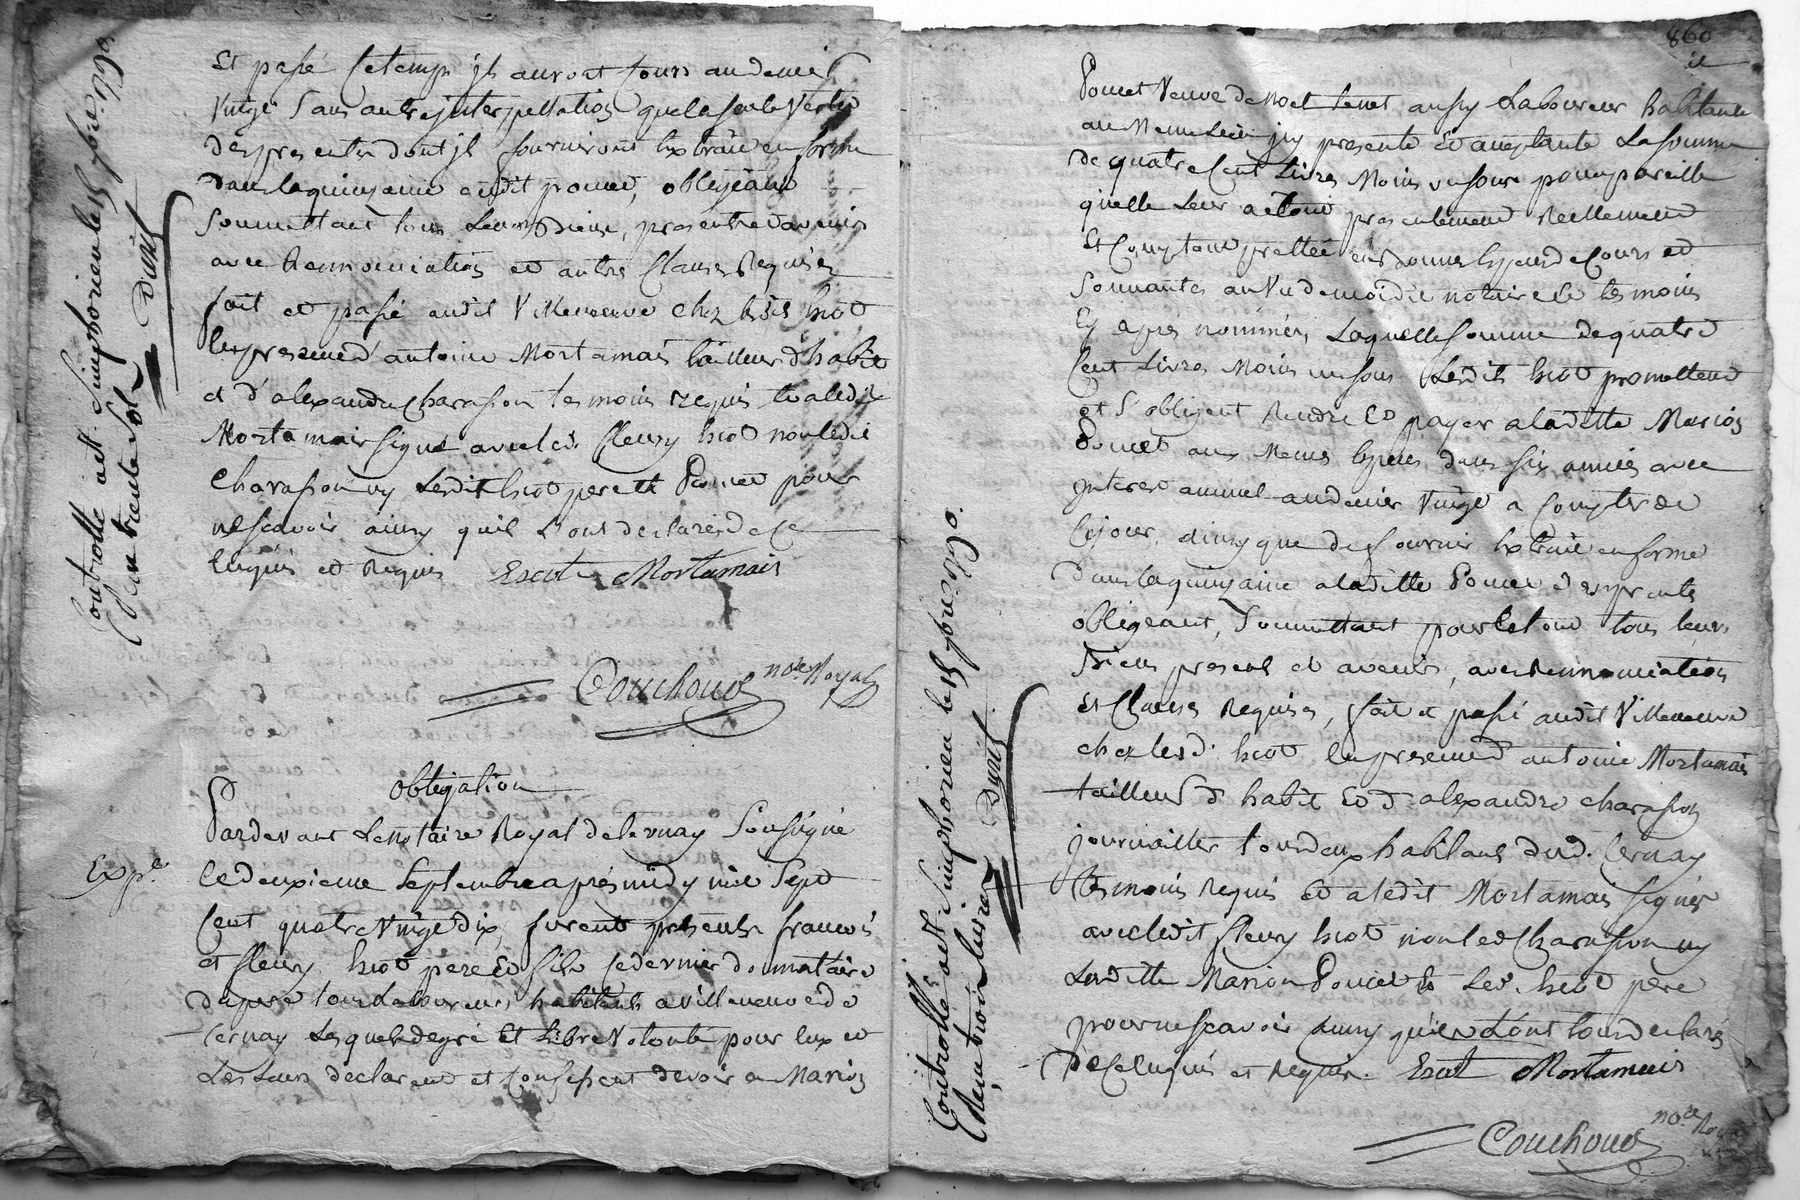 Et passé ce temps ils auront cours au denier
vingt sans autre interpellation que la seule vertu
des presentes dont ils fourniront Extrait en forme
dans la quinzaine audit poncet, obligeant
soumettant tous leurs Biens, presents et avenir
avec Rennonciation et autres Clauses Requises
fait et passé audit Villeneuve chez lesds hiot
En presence d'antoine Mortamais tailleur d'habit
et d'alexandre Charasson temoins requis Et a ledit
Mortamais signé avec led. fleury hiot non ledit
Charasson ny Lesdit hiot pere et Poncet pour
ne scavoir ainsy quil L'ont declarés de ce
Enquis et Requis Escot Mortamais
Couchoud nore Royal
Controllé a st. Simphorien le 15 7bre 1790.
trente sols
obligation
Pardevant Le notaire Royal de Cernay soussigné
Exp.
le deuxieme septembre apres midy mil sept
cent quatre vingt dix, furent presents francois
et fleury hiot pere et fils ce dernier donnataire
du pere tous Laboureurs habitants a villeneuve de
Cernay Lesquels de gré et Libre volonté pour Eux et
Les Leurs declarent et Confessent devoir a Marion
860
Poncet Veuve de noel aussy Laboureur habitante
au Meme Lieu icy presente et aceptante La somme
de quatre Cent Livres Moins un sous pour pareille
quelle Leur a tout presentement Reellement
et Comptant prettée en bonnes Especes de Cours et
sonnantes au Vu de moi dit notaire et temoins
Cy apres nommés, Laquelle somme de quatre
Cent Livres Moins un sous Lesdits hiot promettent
et s'obligent Rendre et payer a laditte Marion
Poncet aux Memes Especes dans six années avec
interet annuel au denier vingt a Compter de
Ce jour, ainsy que de fournir Extrait en forme
dans la quinzaine a laditte Poncet des presentes
obligeant, soumettant pour Le tout tous leurs
Biens present et avenir, avec Rennonciation
et Clauses Requises, fait et passé audit Villeneuve
chez lesd. hiot En presence d'antoine Mortamais
tailleur d'habit et d'alexandre Charasson
journallier tous deux habitants dud. Cernay
temoins requis Et a ledit Mortamais signé
avec ledit fleury hiot non led Charasson ny
Laditte Marion Poncet et Led. hiot pere
pour ne scavoir ainsy qu'ils L'ont tous declarés
de ce Enquis et Requis. Escot Mortamais
Couchoud nore Royal
Controllé a st Simphorien le 15 7bre 1790.